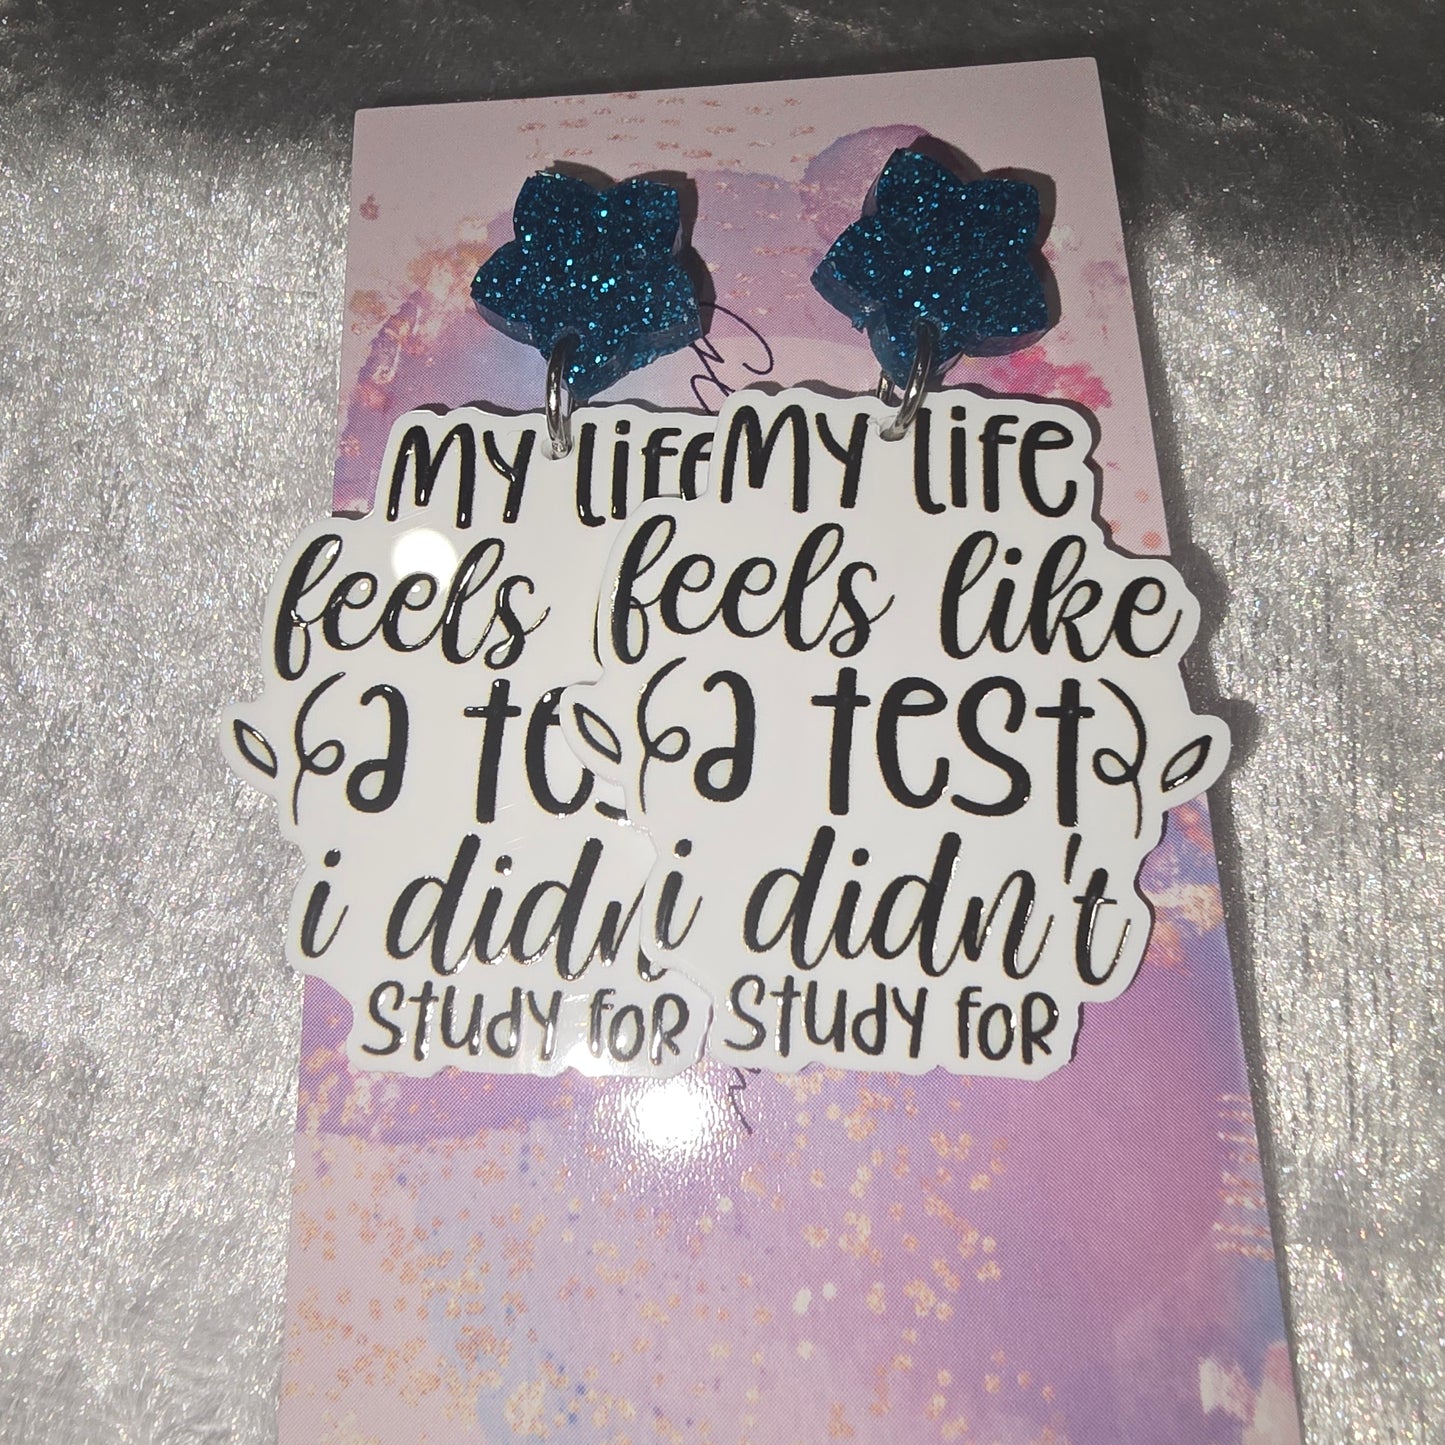 My life
feels
a te
i didn
study for
My life
feels like
a test
i didn't
study for